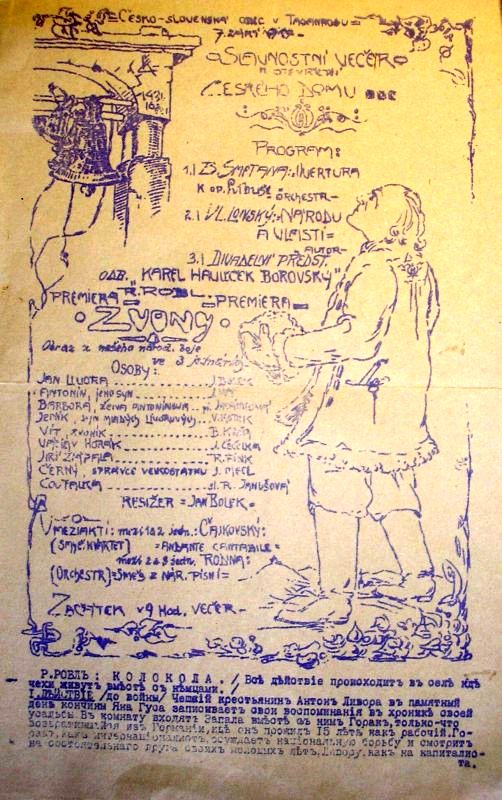 Česko-slovenská obec v Taganrogu
7. září
Slavnostní večer
k otevření
Českého Domu
1431
PROGRAM:
1.) B. Smetana: Overtura
k op. Libuše orchestr-
2.) Vl. Lonský: Národu
a vlasti =
autor-
3.) Divadelní předst.
odb. "Karel Havlíček Borovský"
Premiera R. Robl- Premiera-
• Zvony •
Obraz z našeho národ. boje
ve 3 jednáních
OSOBY:
Jan Livora
Antonín, jeho syn
Barbora, žena Antonínova
Jeník, syn mladých Livorových
Vít, zvoník B.
Václav Horák
Jiří Zapala R. Fink
Černý, správce velkostatku J.
Coufalka Janušová
Režižer = Jan Bolek-
V meziaktí: mezi 1a2 jedn.: Čajkovský:
(Smyč. kvartet) = Andante cantabile =
mezi 2a3 jedn. Rodina:
(Orchestr) = Směs z nár. písní =
Začátek v 9 hod. večer-
Р.РОБЛЬ: КОЛОКОЛА. /Всѣ дѣйствіе происходитъ въ селѣ гдѣ
чехи живутъ вмѣстѣ съ нѣмцами./
I.ДѢЙСТВІЕ /до войны/ Чешій крестьянинъ Антонъ Ливора въ памятный
день кончины Яна Гуса записиваетъ свои воспоминанія въ хроникѣ своей
усадьбы. Въ комнату входятъ Запала вмѣстѣ съ нимъ Горакъ, только-что
возратившійся изъ Германіи, гдѣ онъ прожилъ 15 лѣтъ какъ рабочій. Го-
ракъ, какъ интернаціоналистъ, осуждаетъ національную борьбу и смотритъ
на состоятельнаго друга своихъ молодыхъ лѣтъ, Ливору, какъ на капиталис-
та.